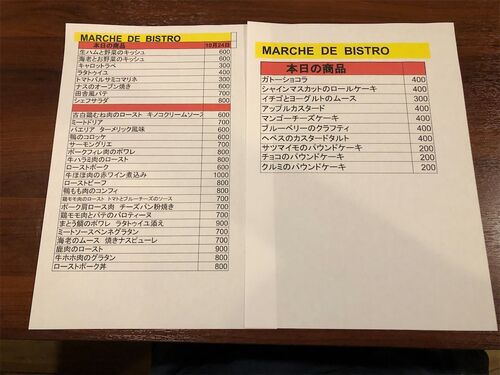 MARCHE DE BISTRO
本日の商品 10月24日
生ハムと野菜のキッシュ 600
海老とお野菜のキッシュ 600
キャロットラペ 300
ラタトゥイユ 400
トマトバルサミコマリネ 300
ナスのオーブン焼き 600
田舎風パテ 700
シェフサラダ 800
古白鶏むね肉のロースト キノコクリームソース 600
ミートドリア 700
パエリア ターメリック風味 600
鴨のコロッケ 600
サーモングリエ 700
ポークフィレ肉のポワレ 800
牛ハラミ肉のロースト 800
ローストポーク 600
牛ほほ肉の赤ワイン煮込み 1000
ローストビーフ 800
鴨もも肉のコンフィ 800
鶏モモ肉のロースト トマトとブルーチーズのソース 700
ポーク肩ロース肉 チーズパン粉焼き 700
鶏モモ肉とパテのバロティーヌ 700
まとう鯛のポワレ ラタトゥイユ添え 900
ミートソースペンネグラタン 700
海老のムース 焼きナスピューレ 700
鹿肉のロースト 900
牛ホホ肉のグラタン 800
ローストポーク丼 800
MARCHE DE BISTRO
本日の商品
ガトーショコラ 400
シャインマスカットのロールケーキ 400
イチゴとヨーグルトのムース 300
アップルカスタード 400
マンゴーチーズケーキ 400
ブルーベリーのクラフティ 400
ヘベスのカスタードタルト 400
サツマイモのパウンドケーキ 200
チョコのパウンドケーキ 200
クルミのパウンドケーキ 200